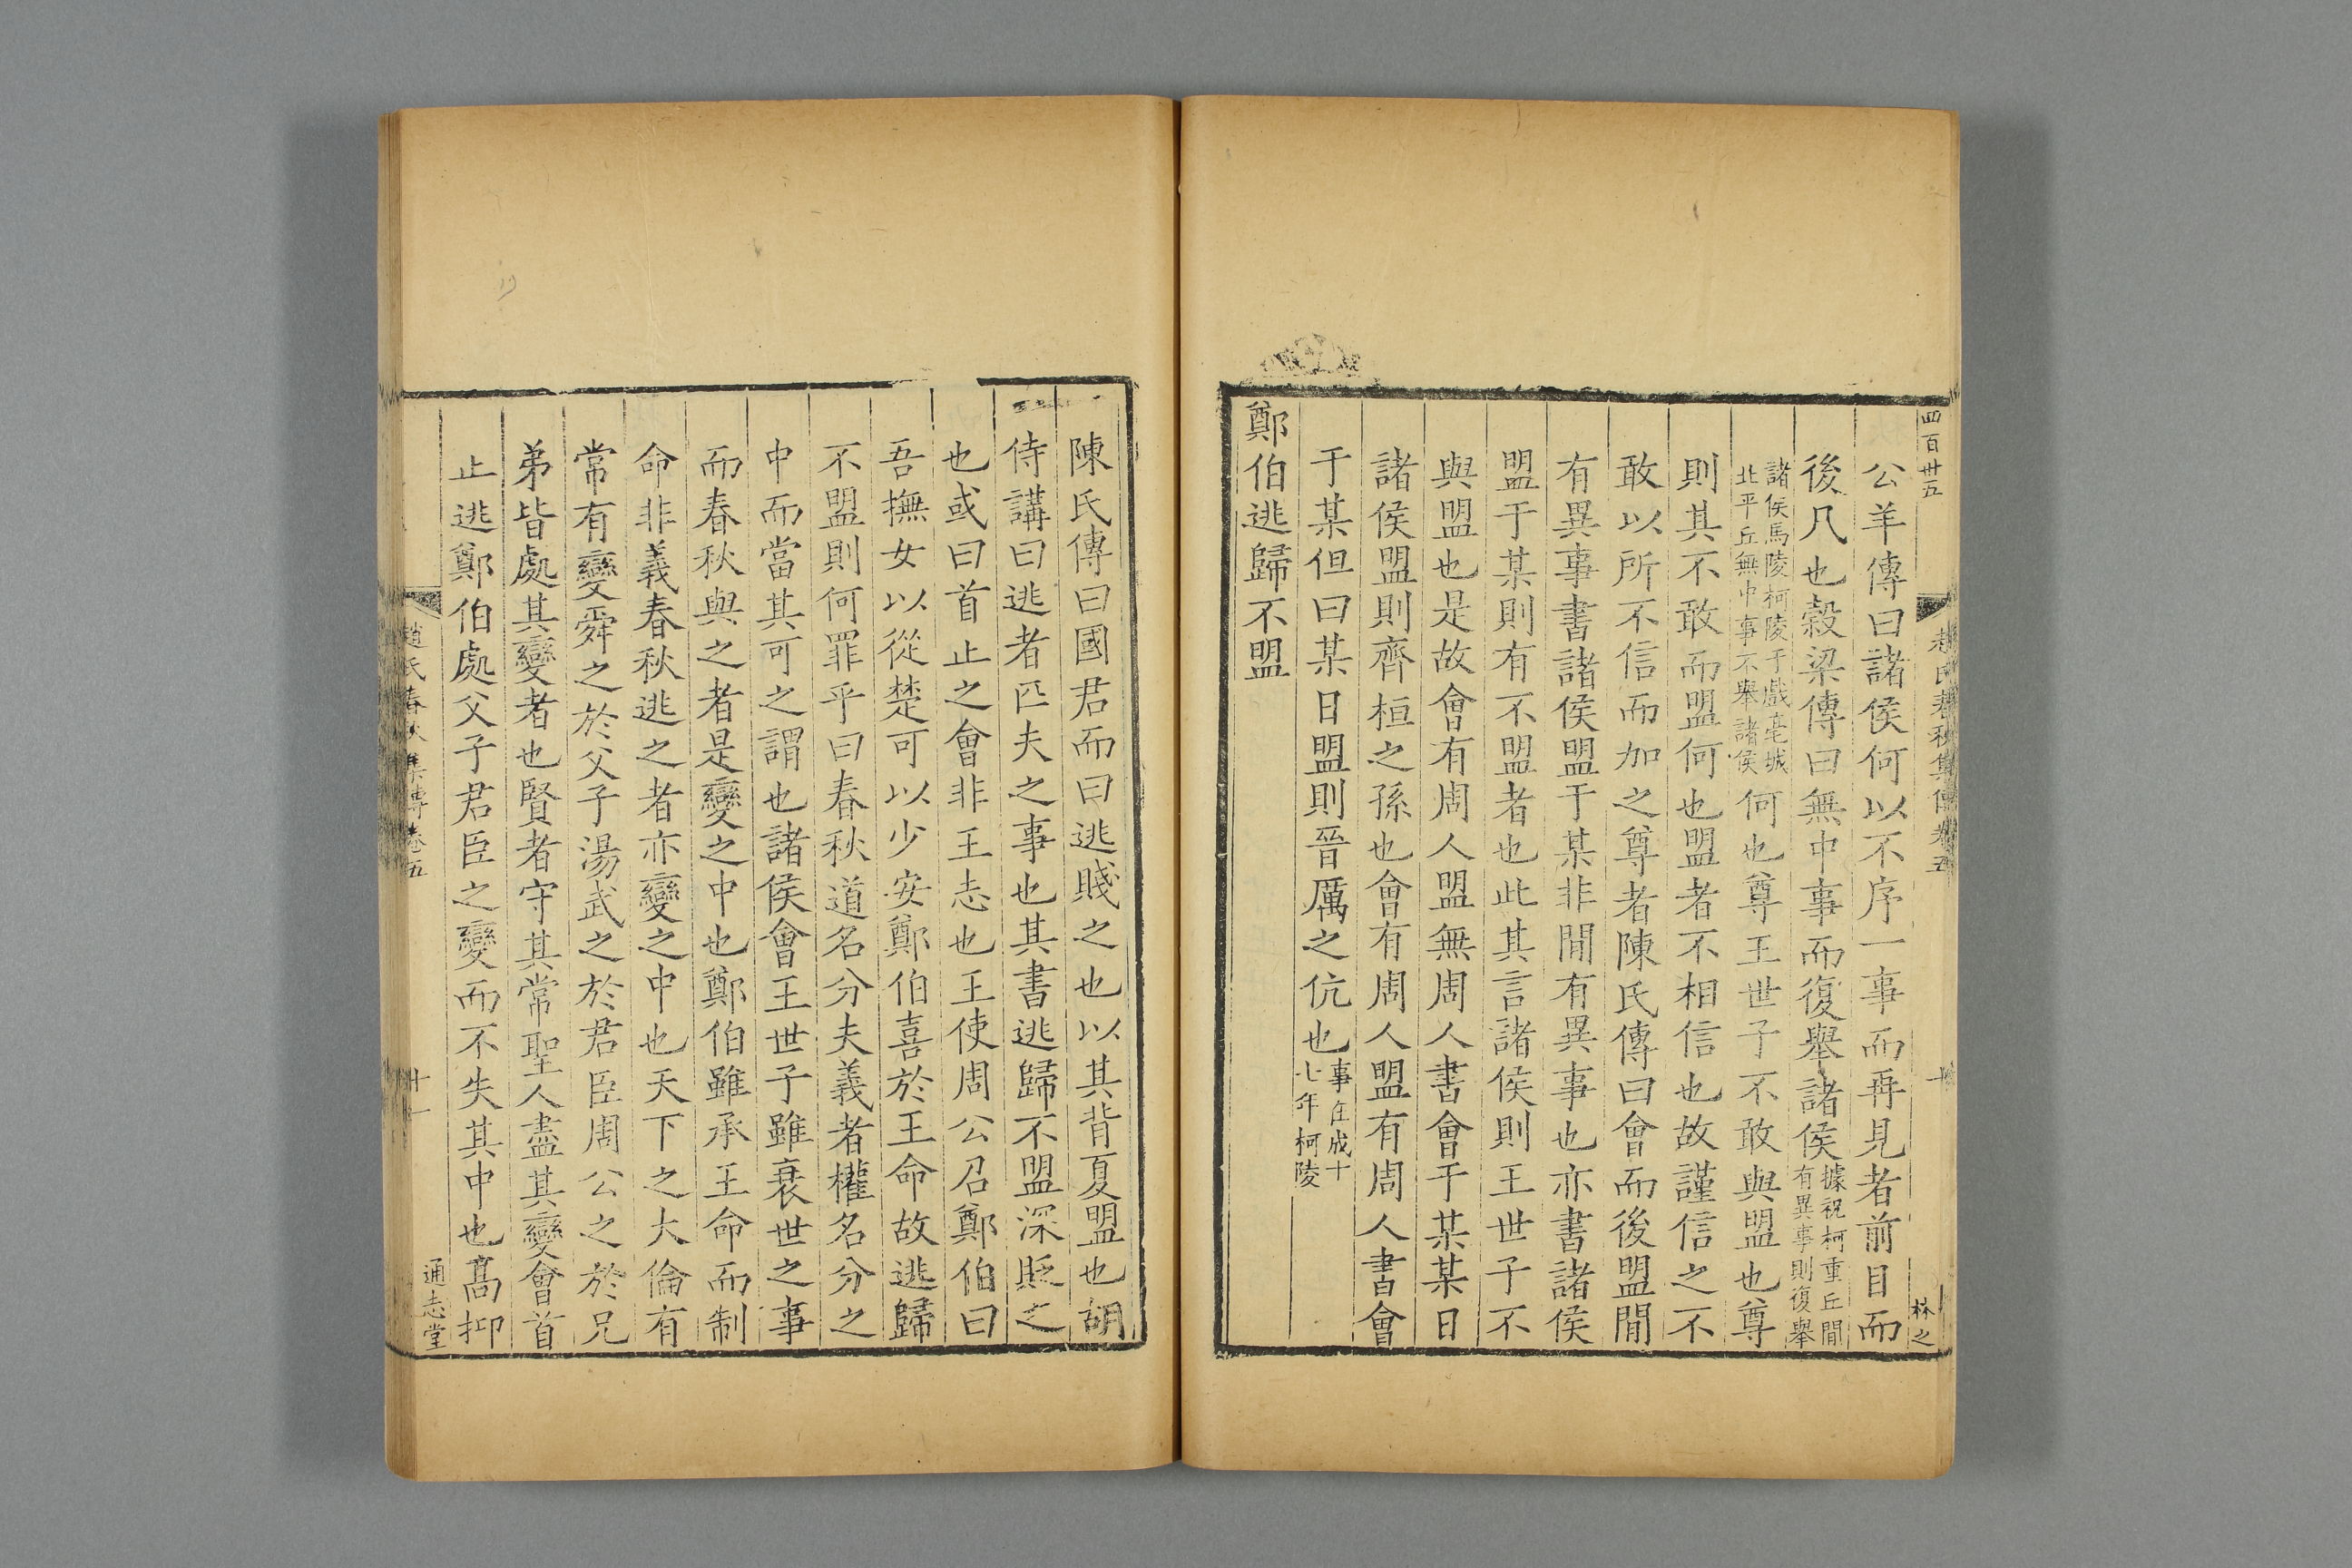 四百卅五
趙氏春秋集傳卷五
十
林之
公羊傳曰諸侯何以不序一事而再見者前目而
後凡也穀梁傳曰無中事而復舉諸侯據祝柯重丘間有異事則復舉
諸侯馬陵柯陵于戲亳城北平丘無中事不舉諸侯何也尊王世子不敢與盟也尊
則其不敢而盟何也盟者不相信也故謹信之不
敢以所不信而加之尊者陳氏傳曰會而後盟間
有異事書諸侯盟于某非間有異事也亦書諸侯
盟于某則有不盟者也此其言諸侯則王世子不
與盟也是故會有周人盟無周人書會于某某日
諸侯盟則齊桓之孫也會有周人盟有周人書會
于某但曰某日盟則晉厲之伉也事在成十七年柯陵
鄭伯逃歸不盟
陳氏傳曰國君而曰逃賤之也以其背夏盟也胡
侍講曰逃者匹夫之事也其書逃歸不盟深貶之
也或曰首止之會非王志也王使周公召鄭伯曰
吾撫女以從楚可以少安鄭伯喜於王命故逃歸
不盟則何罪乎曰春秋道名分夫義者權名分之
中而當其可之謂也諸侯會王世子雖衰世之事
而春秋與之者是變之中也鄭伯雖承王命而制
命非義春秋逃之者亦變之中也天下之大倫有
常有變舜之於父子湯武之於君臣周公之於兄
弟皆處其變者也賢者守其常聖人盡其變會首
止逃鄭伯處父子君臣之變而不失其中也髙抑
趙氏春秋集傳卷五
十一
通志堂